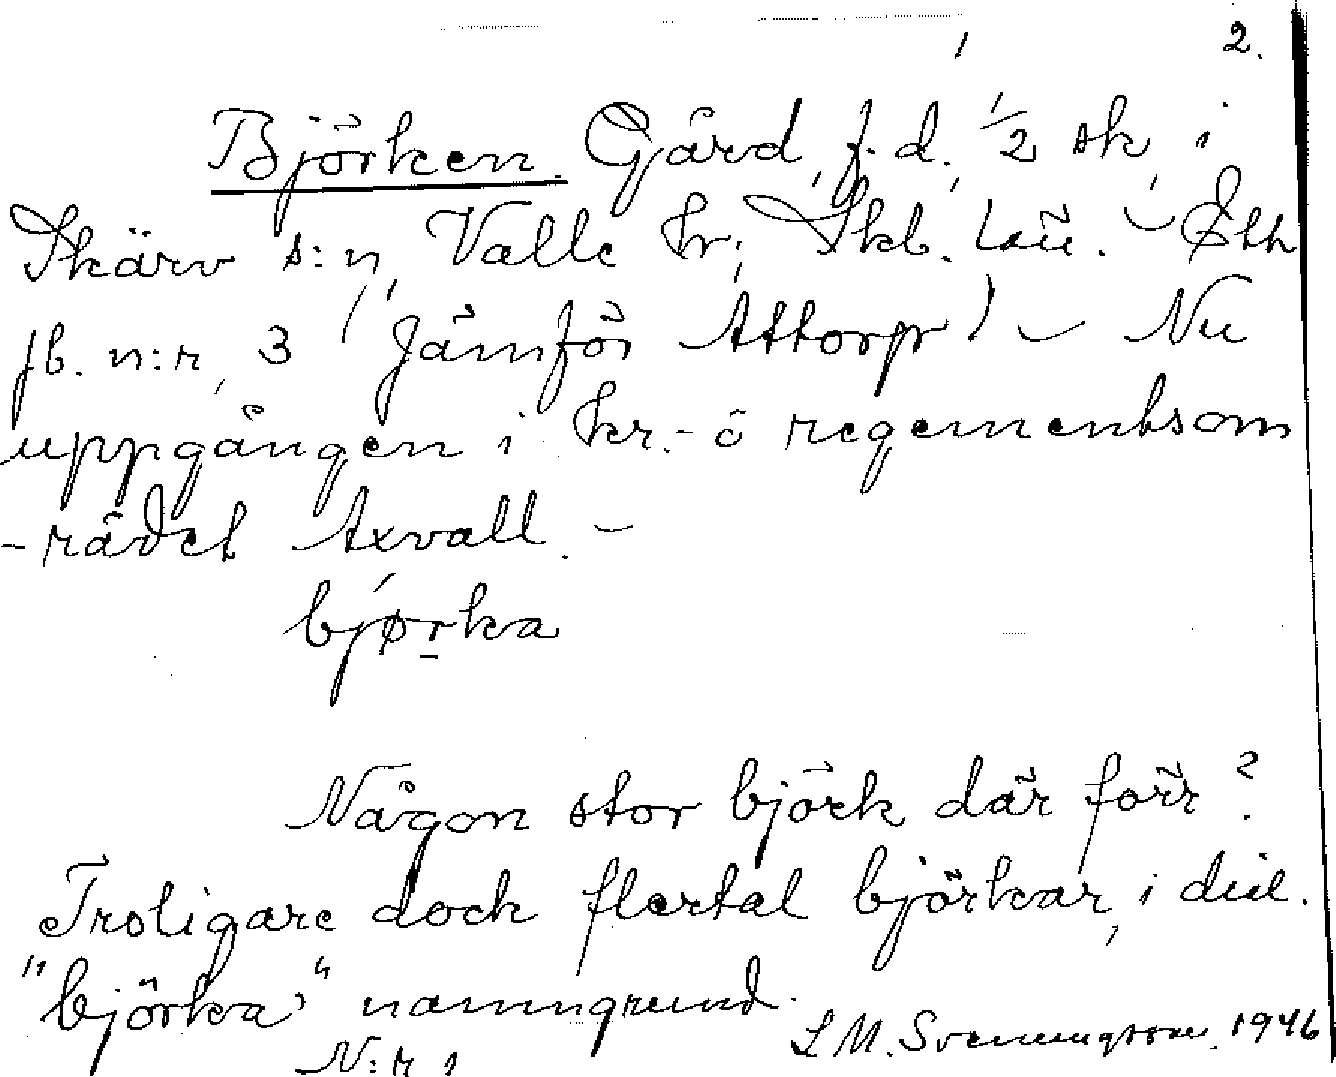 2.
Björken. Gård, f. d. 1/2 sk, i
Skärv s:n, Valle hr, Skb. län. - Ett
jb. n:r, 3 (Jämför Attorp) - Nu
uppgången i kr.- o regementsom
-rådet Axvall. -
bjørka
Någon stor björk där förr?
Troligare dock flertal björkar, i dial.
"björka" namngrund.
N:r 1 L M. Svenungsson. 1946